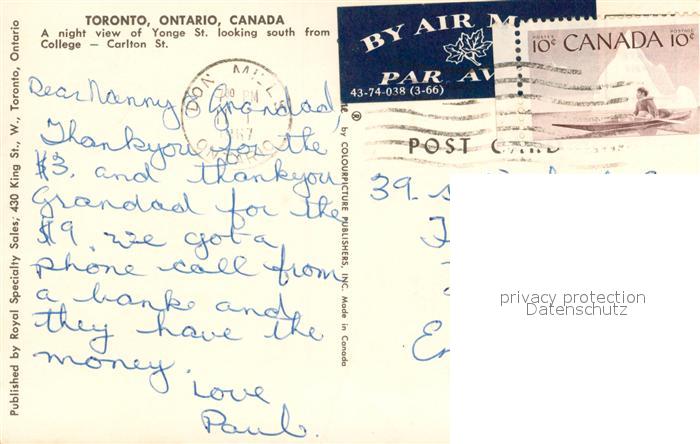 TORONTO, ONTARIO, CANADA
A night view of Yonge St. looking south from
College — Carlton St.
Published by Royal Specialty Sales; 430 King St., W., Toronto, Ontario
BY AIR M
PAR AV
43-74-038 (3-66)
POSTES POSTAGE
10¢ CANADA 10¢
DON MILLS
PM
ONTARIO
POST CARD
by COLOURPICTURE PUBLISHERS, INC. Made in Canada
Dear Nanny & Grandad,
Thankyou for the
$3. and thankyou
Grandad for the
$9. we got a
phone call from
a banke and
they have the
money.
Love
Paul.
39.
En
privacy protection
Datenschutz